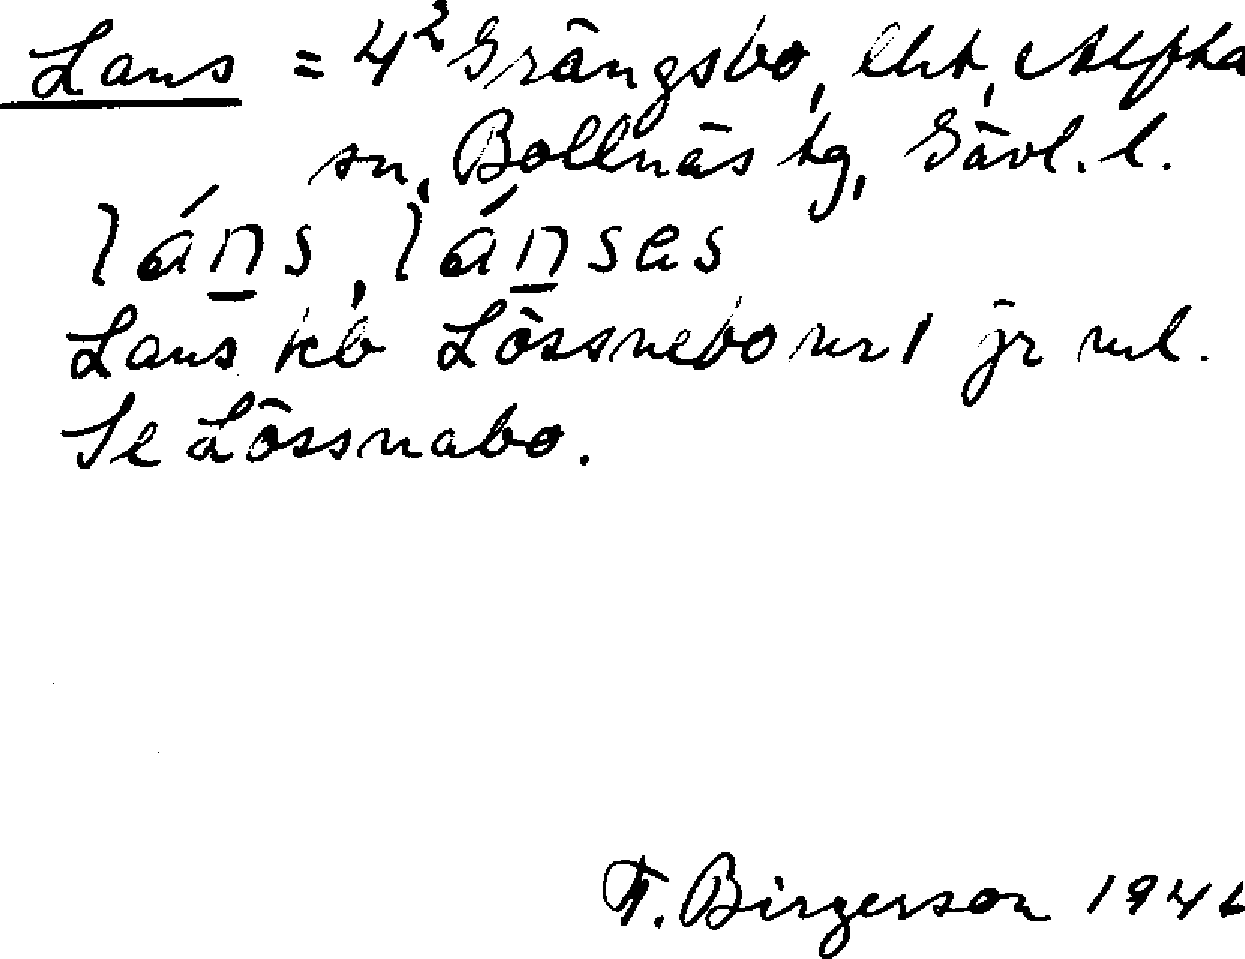 Lans = 4² Grängsbo, eht, Alfta
sn, Bollnäs tg, Gävl. l.
láns, lánses
Lans kb Lössnebo nr 1 jr ml.
Se Lössnabo.
T. Birgerson 194